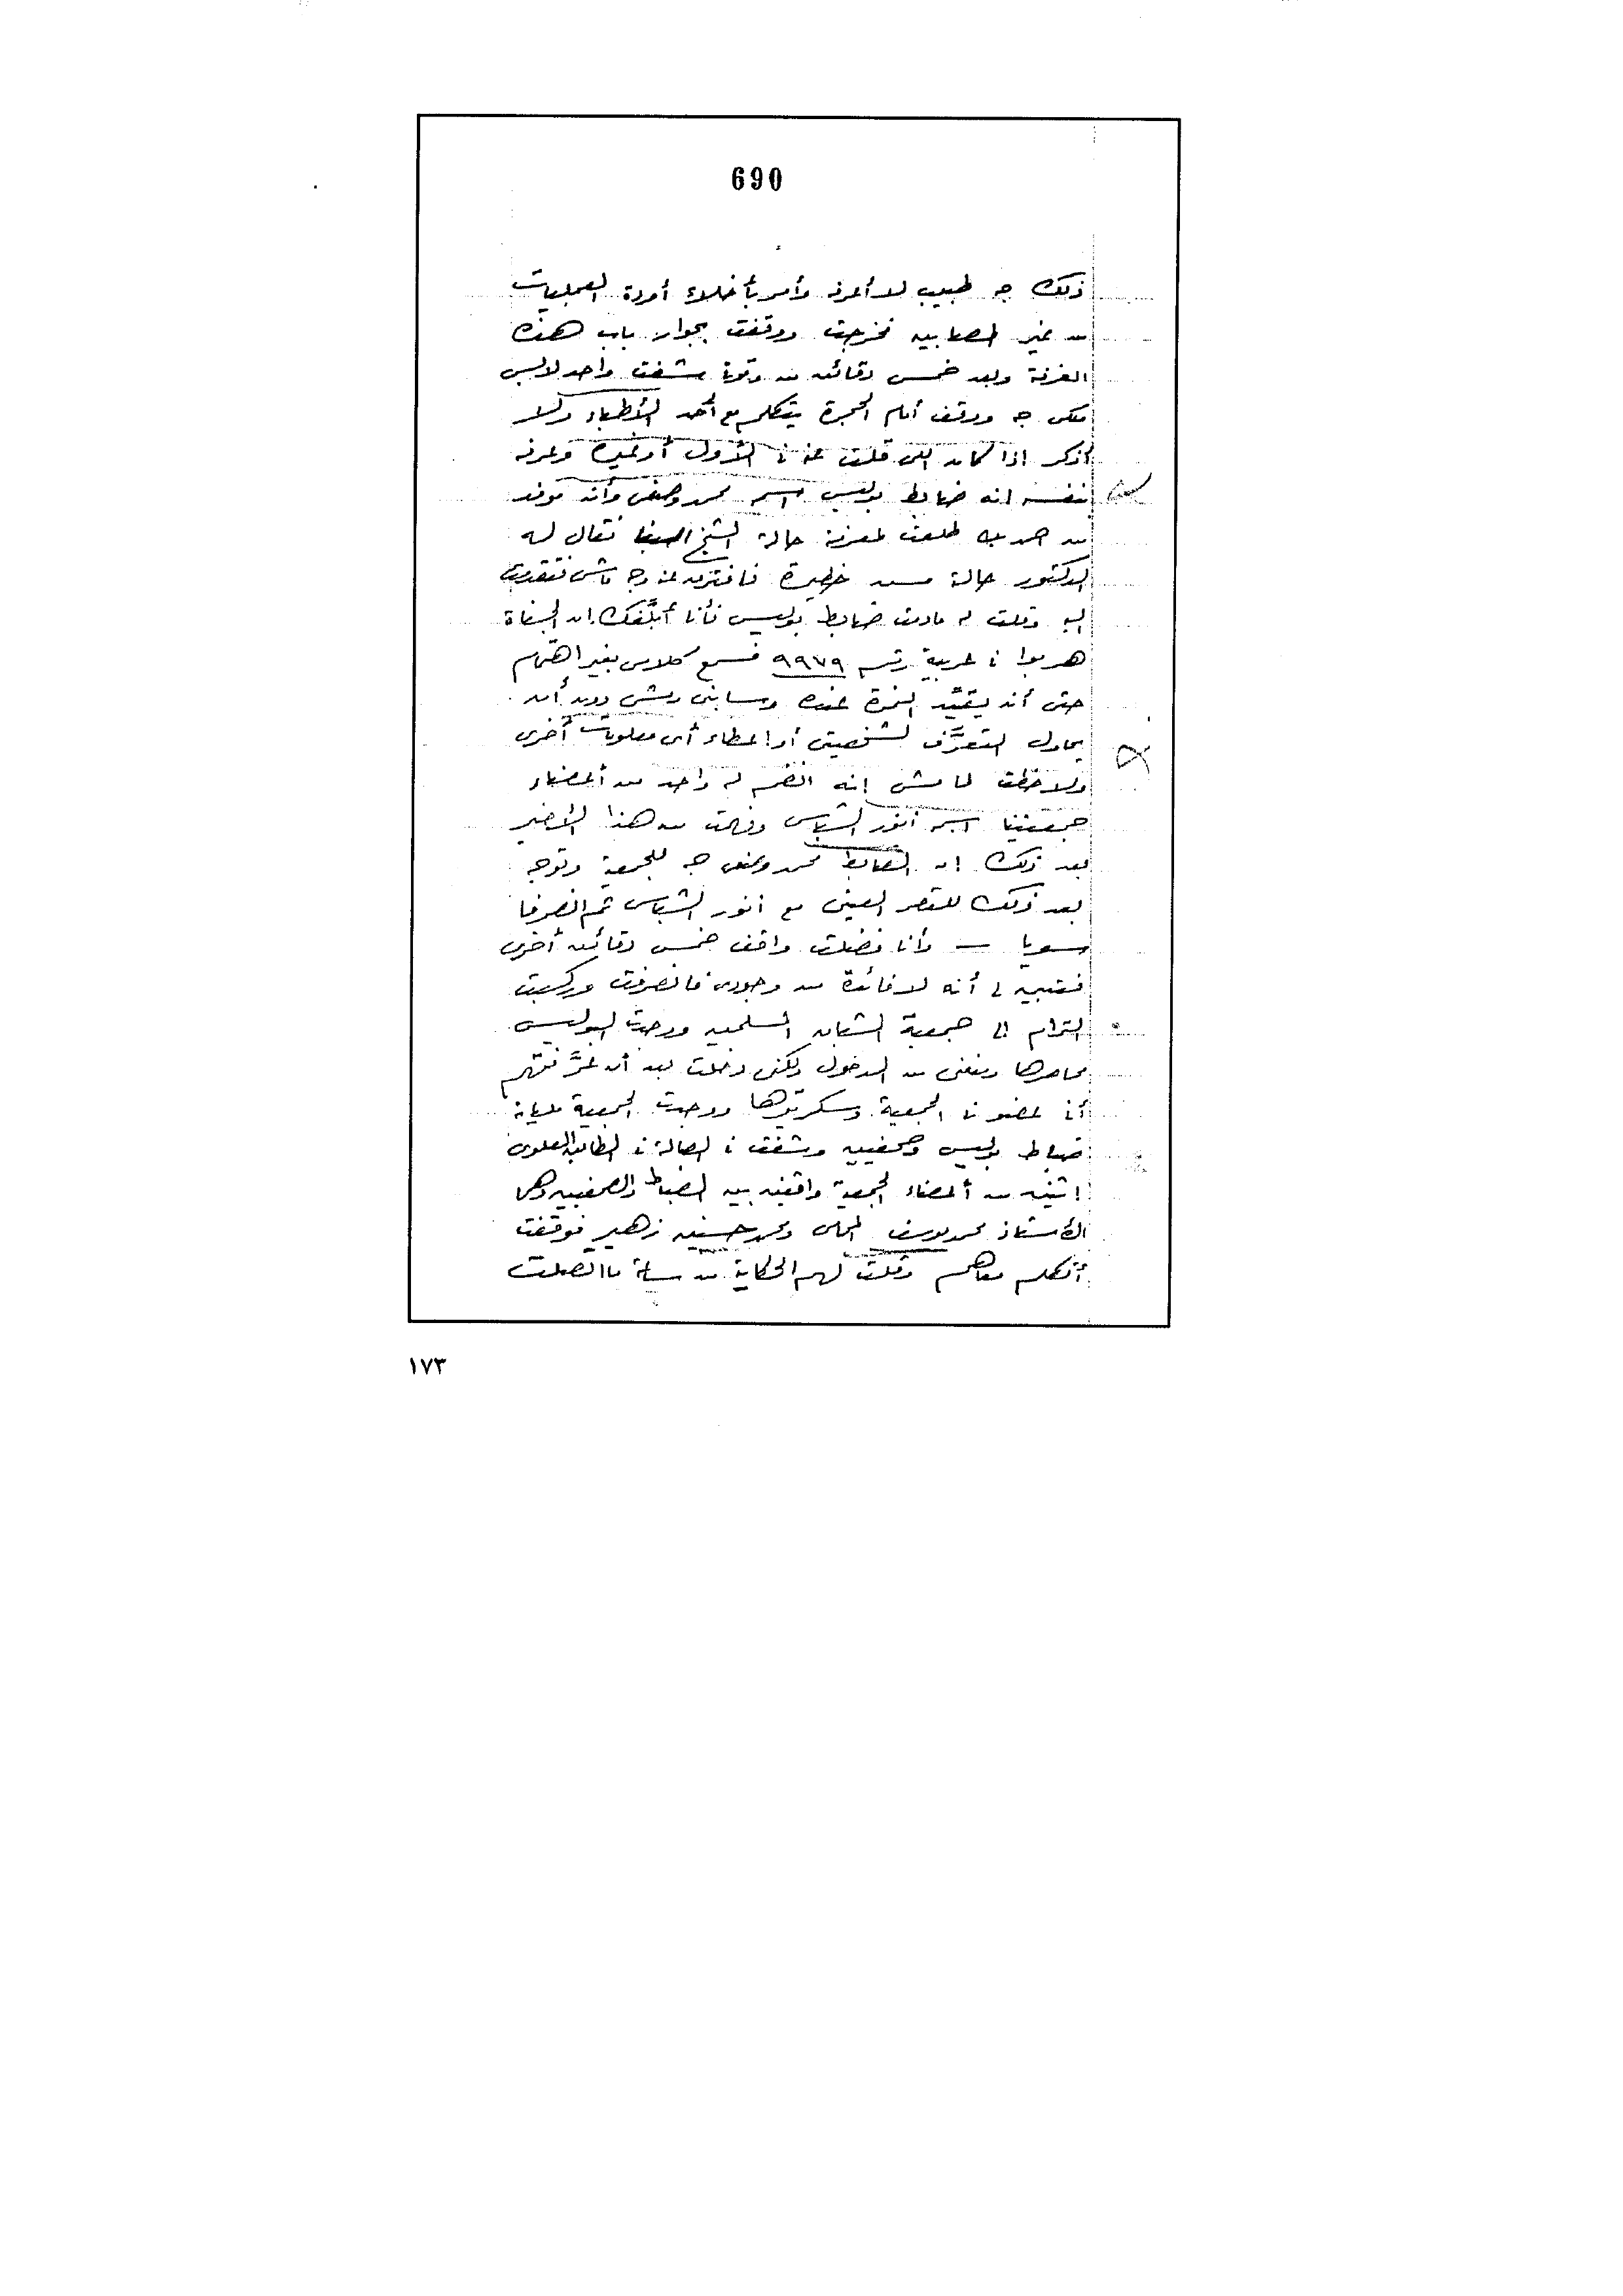 690
ذلك جه طبيب لا أعرفه وأمر بأخلاء أودة العمليات
من غير المصابين فخرجت ووقفت بجوار باب هذه
الغرفة وبعد خمس دقائق من وقوفى شفت واحد لابس
ملكى جه ووقف أمام الحجرة يتكلم مع أحد الأطباء ولا
أذكر اذا كان اللى قلت عنه فى الأول أو غيره وعرفه
بنفسه انه ضابط بوليس اسمه محمد وصفى وأنه موفد
من طلعت لمعرفة حالة الشيخ البنا فقال له
الدكتور حالة خطيرة ماشى فتقدمت
اليه وقلت له مادمت ضابط بوليس فأنا أبلَّغك ان الجناة
هربوا فى عربية رقم ٩٩٧٩ فسمع كلامى بغير اهتمام
حتى أنه يقيَّد النمرة عنده وسابنى ومشى دون أن
يحاول التعرَّف لشخصيتى أو اعطاء أى معلومات أخرى
ولاحظت لما مشى انه انضم له واحد من أعضاء
جمعيتنا اسمه أنور الشباسى وفهمت من هذا الأخير
بعد ذلك ان الضابط محمد وصفى جه للجمعية وتوجه
بعد ذلك للقصر العينى مع أنور الشباسى ثم انصرفا
سويا — وأنا فضلت واقف خمس دقائق أخرى
فتبين لى أنه لا فائدة من وجودى فانصرفت وركبت
الترام الى جمعية الشبان المسلمين ووجدت البوليس
محاصرها ومنعنى من الدخول ولكنى دخلت بعد أن عرَّفتهم
أنى عضو فى الجمعية وسكرتيرها ووجدت الجمعية مليانة
ضباط بوليس وصحفيين وشفت فى الصالة فى الطابق العلوى
اثنين من أعضاء الجمعية واقفين بين الضباط والصحفيين وهما
الأستاذ محمد يوسف الليثى ومحمد حسنين زهير فوقفت
أتكلم معاهم وقلت لهم الحكاية من ساعة ما اتصلت
١٧٣